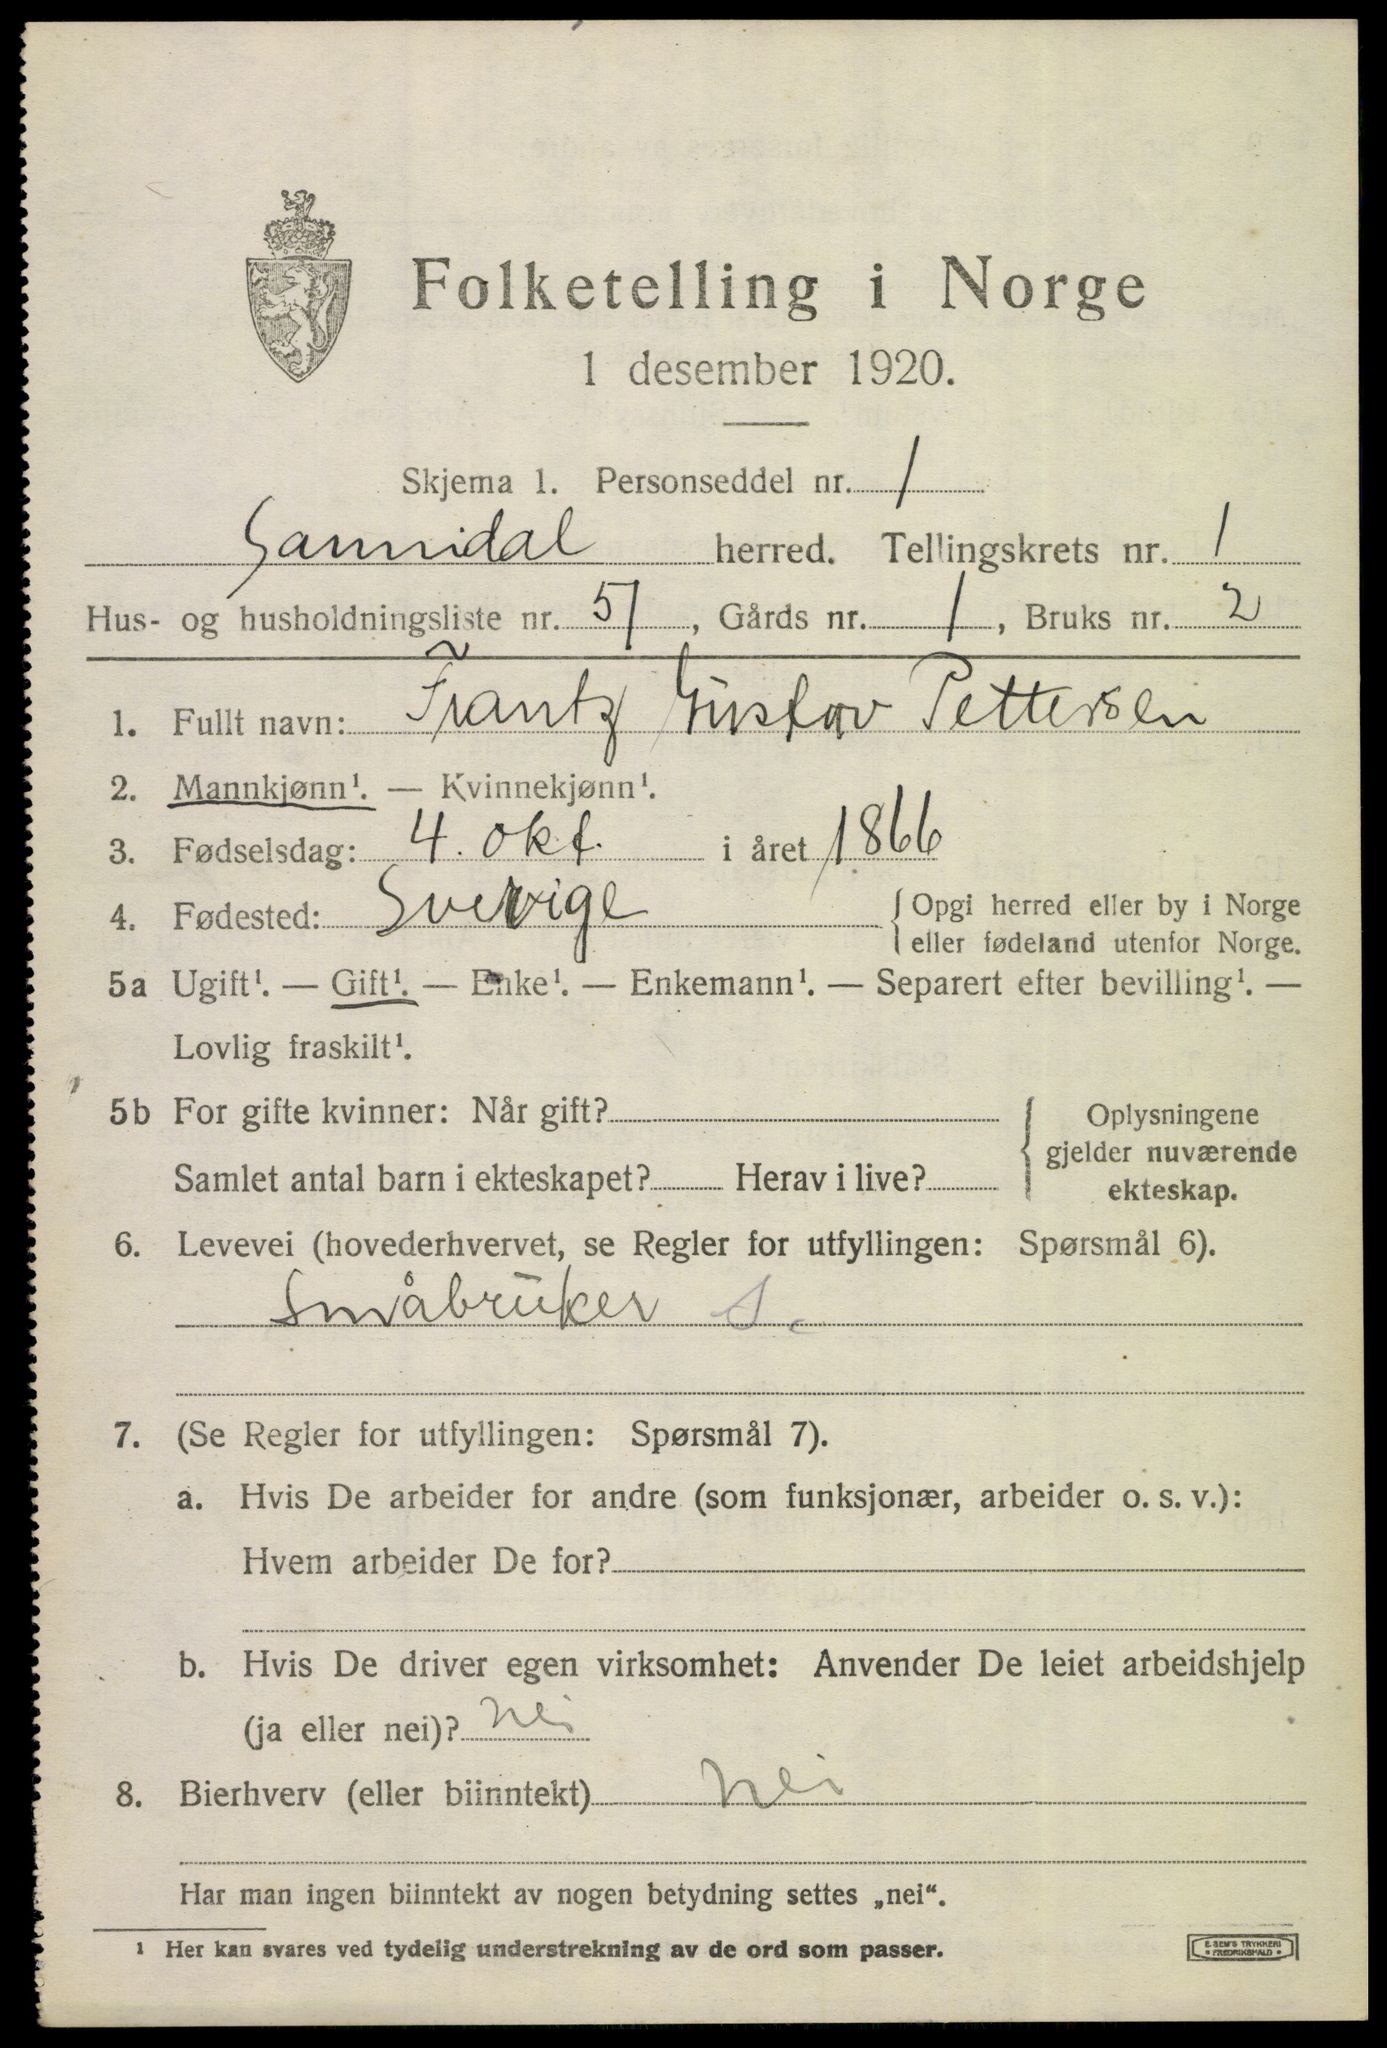 Folketelling i Norge
1 desember 1920.
Skjema 1. Personseddel nr. 1
Sannidal herred. Tellingskrets nr. 1
Hus- og husholdningsliste nr. 51, Gårds nr. 1, Bruks nr. 2
1. Fullt navn: Frantz Gustav Pettersen
2. Mannkjønn¹. — Kvinnekjønn¹.
3. Fødselsdag: 4. okt. i året 1866
4. Fødested: Sverige { Opgi herred eller by i Norge
eller fødeland utenfor Norge.
5a Ugift¹. — Gift¹. — Enke¹. — Enkemann¹. — Separert efter bevilling¹. —
Lovlig fraskilt¹.
5b For gifte kvinner: Når gift? { Oplysningene
gjelder nuværende
Samlet antal barn i ekteskapet? Herav i live? ekteskap.
6. Levevei (hovederhvervet, se Regler for utfyllingen: Spørsmål 6).
Småbruker S.
7. (Se Regler for utfyllingen: Spørsmål 7).
a. Hvis De arbeider for andre (som funksjonær, arbeider o. s. v.):
Hvem arbeider De for?
b. Hvis De driver egen virksomhet: Anvender De leiet arbeidshjelp
(ja eller nei)? nei
8. Bierhverv (eller biinntekt) nei
Har man ingen biinntekt av nogen betydning settes „nei“.
¹ Her kan svares ved tydelig understrekning av de ord som passer.
E. SEM'S TRYKKERI
• FREDRIKSHALD •